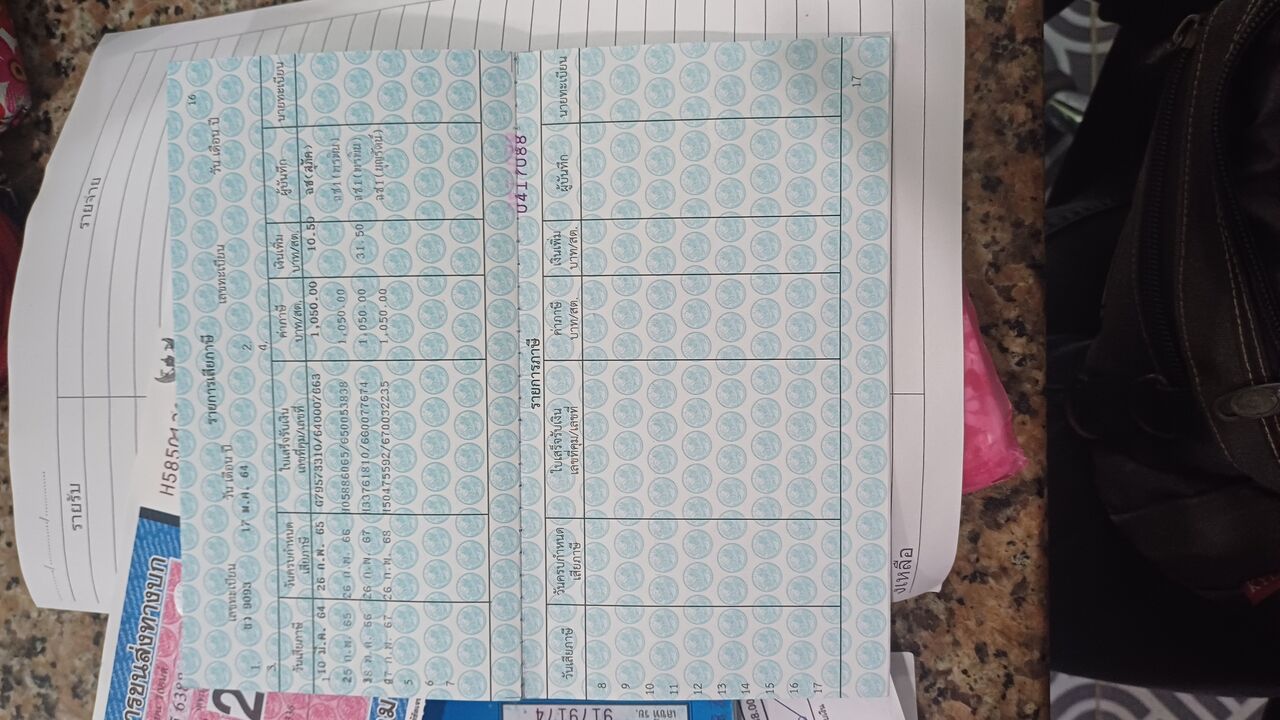 16
รายการเสียภาษี
เลขทะเบียน วัน เดือน ปี เลขทะเบียน วัน เดือน ปี
1. ขว 9093 17 พ.ค. 64 2.
3. 4.
วันเสียภาษี วันครบกำหนดเสียภาษี ใบเสร็จรับเงิน เลขที่คุม/เลขที่ ค่าภาษี บาท/สต. เงินเพิ่ม บาท/สต. ผู้บันทึก นายทะเบียน
1 10 มี.ค. 64 26 ก.พ. 65 G79573310/640007663 1,050.00 10.50 ฉช(สุมิตา)
2 5 ก.พ. 65 26 ก.พ. 66 058886065/650053838 1,050.00 ฉช1(หรรษา)
3 8 พ.ค. 66 26 ก.พ. 67 33761810/660077674 1,050.00 31.50 ฉช1(หรรษา)
4 7 ก.พ. 67 26 ก.พ. 68 50475592/670032235 1,050.00 ฉช1(บุญรัตน์)
5
6
7
0417088
รายการภาษี
วันเสียภาษี วันครบกำหนดเสียภาษี ใบเสร็จรับเงิน เลขที่คุม/เลขที่ ค่าภาษี บาท/สต. เงินเพิ่ม บาท/สต. ผู้บันทึก นายทะเบียน
8
9
10
11
12
13
14
15
16
17
17
รายรับ รายจ่าย
H58504
การขนส่งทางบก
2
เลขที่ รย. 9179174